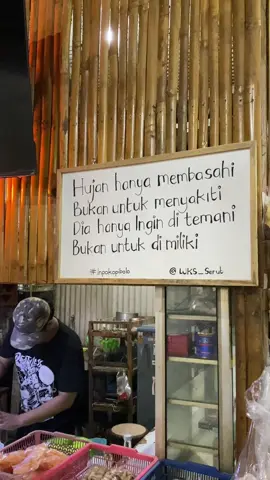 Hujan hanya membasahi
Bukan untuk menyakiti
Dia hanya Ingin di temani
Bukan untuk di miliki
#inpokopikale @WKS_Serut